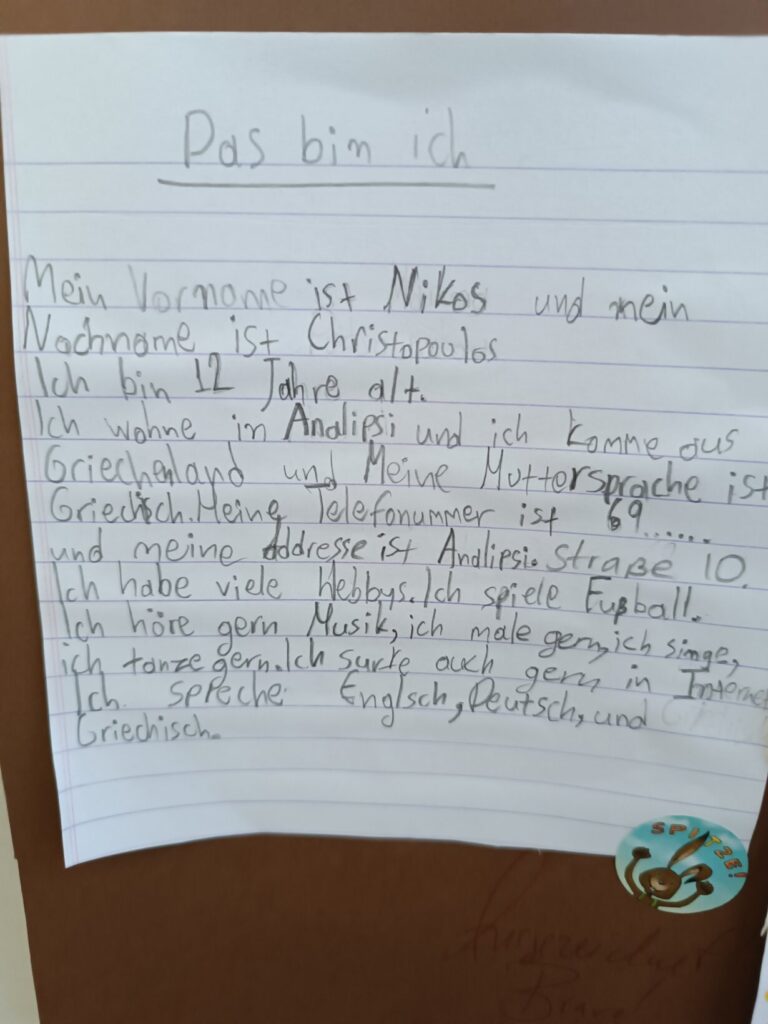 Das bin ich
Mein Vorname ist Nikos und mein
Nachname ist Christopoulos
Ich bin 12 Jahre alt.
Ich wohne in Analipsi und ich komme aus
Griechenland und Meine Muttersprache ist
Griechisch. Meine Telefonummer ist 69......
und meine Addresse ist Analipsi. Straße 10.
Ich habe viele Hebbys. Ich spiele Fußball.
Ich höre gern Musik, ich male gern, ich singe,
ich tanze gern. Ich surfe auch gern in Internet
Ich spreche Englsch, Deutsch, und
Griechisch.
SPITZE!
Bravo!